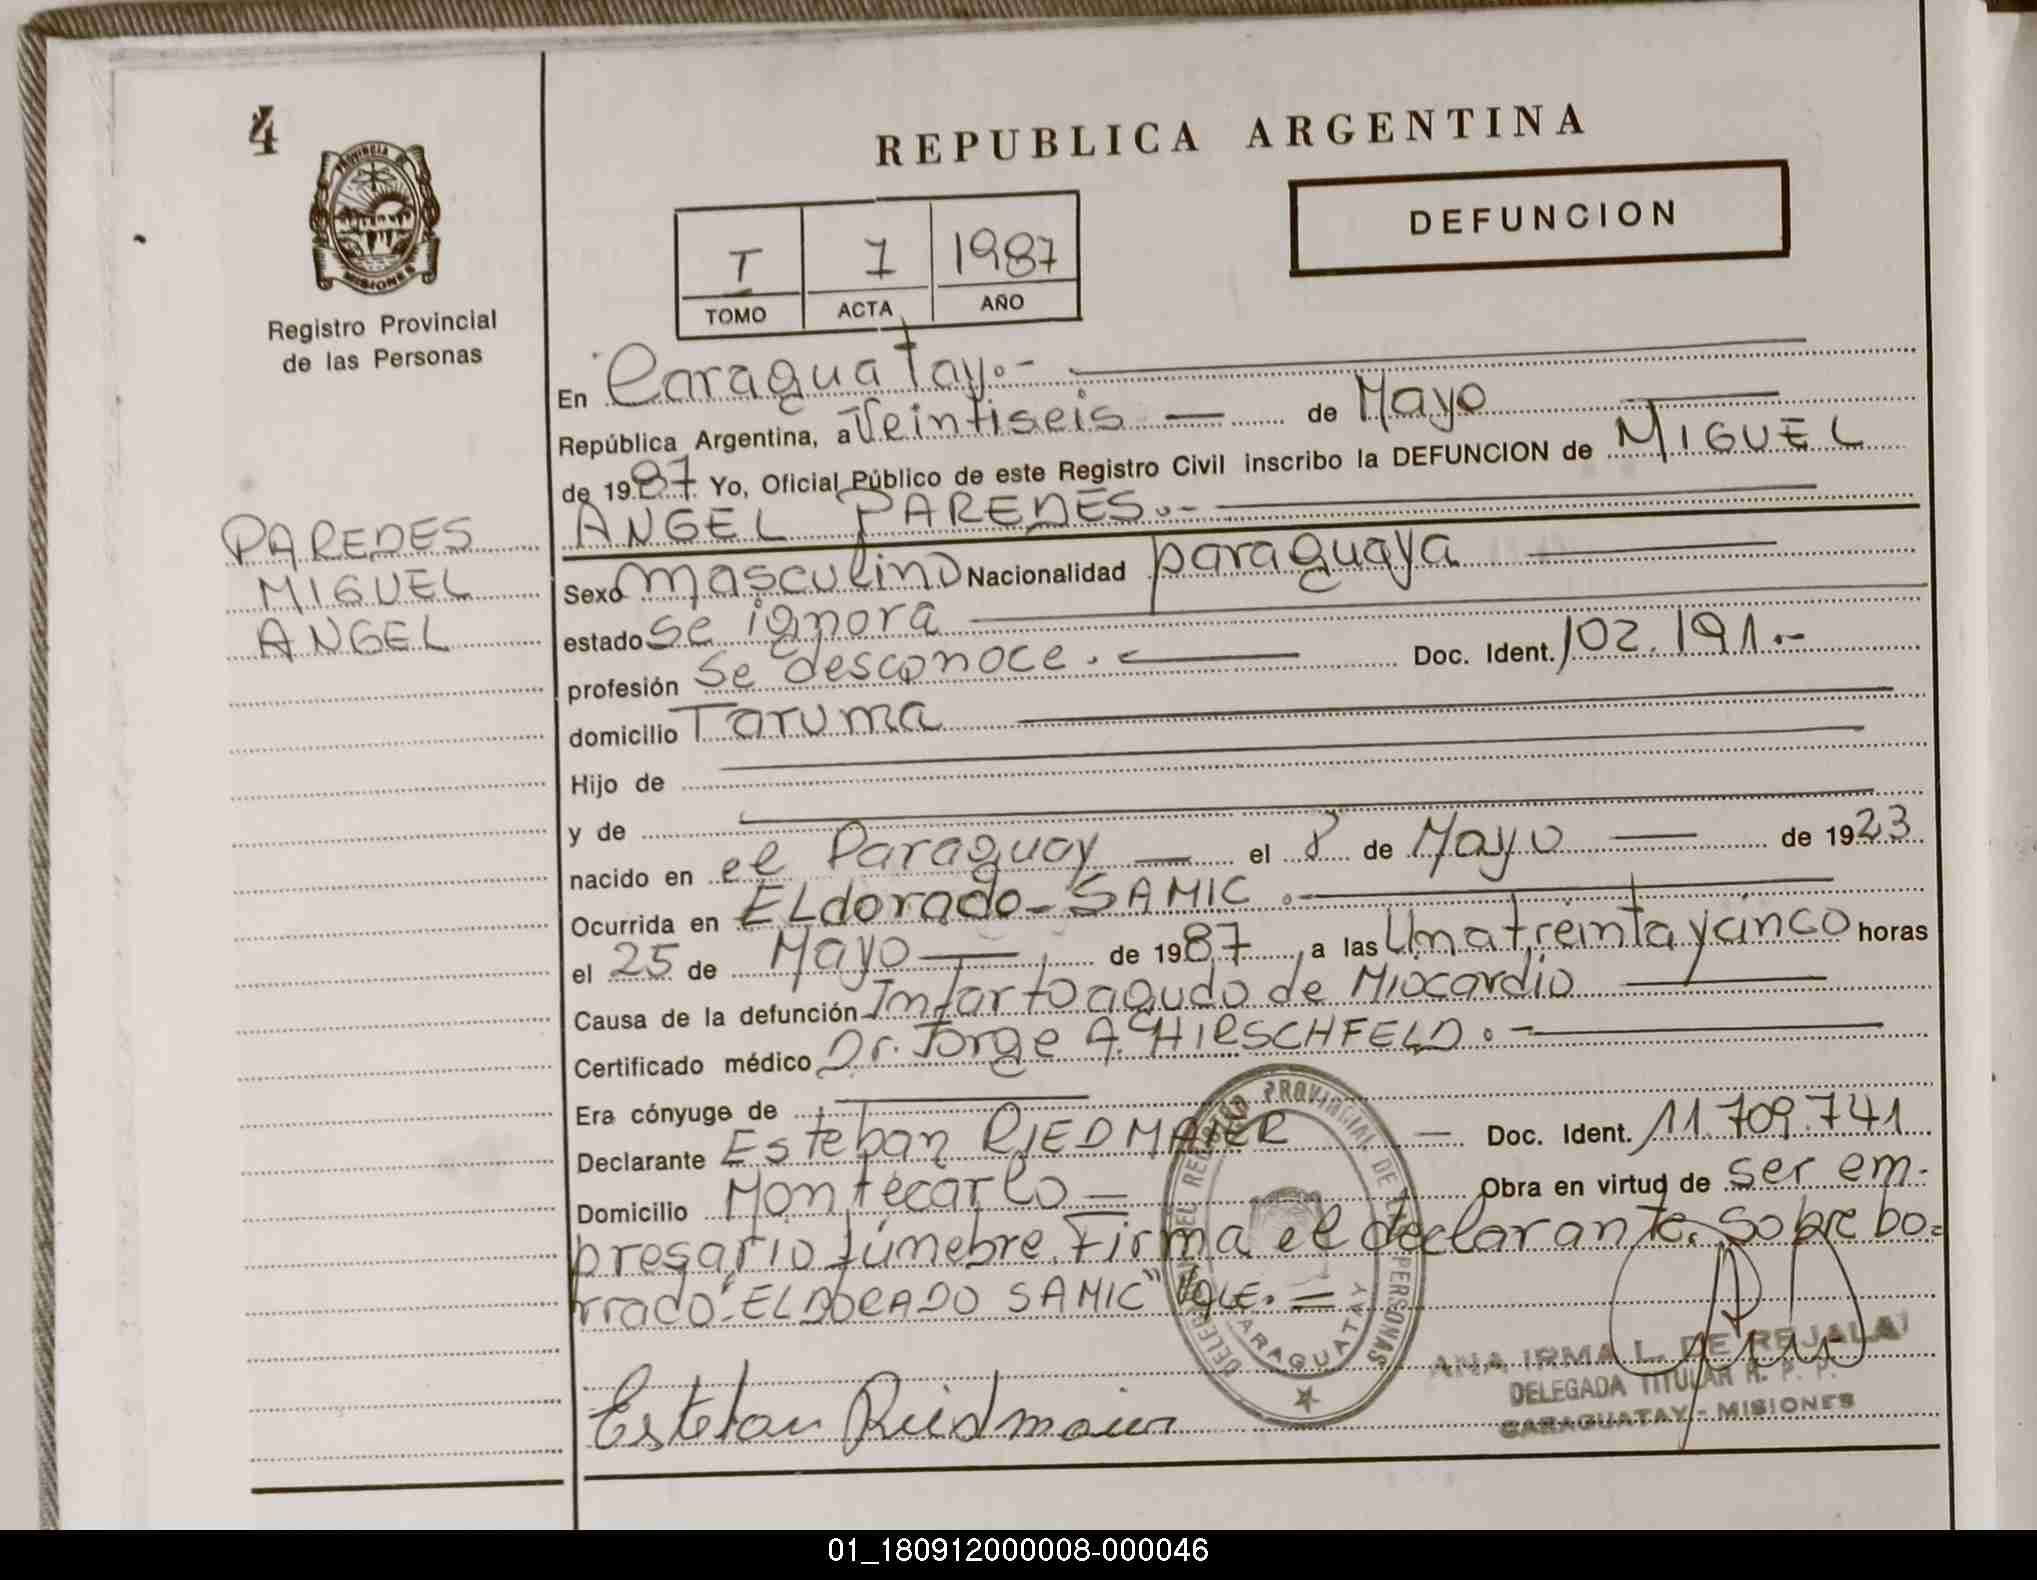 4
PROVINCIA DE
MISIONES
Registro Provincial
de las Personas
REPUBLICA ARGENTINA
DEFUNCION
T 7 1987
TOMO ACTA AÑO
En Caraguatay.-
República Argentina, a Veintiseis de Mayo
de 1987. Yo, Oficial Público de este Registro Civil inscribo la DEFUNCION de MIGUEL
ANGEL PAREDES.-
PAREDES
MIGUEL
ANGEL
Sexo masculino Nacionalidad paraguaya
estado se ignora
profesión Se desconoce.- Doc. Ident. 102.191.-
domicilio Taruma
Hijo de
y de
nacido en el Paraguay el 8 de Mayo de 1923
Ocurrida en ELdorado-SAMIC.-
el 25 de Mayo de 1987, a las Una treinta y cinco horas
Causa de la defunción Infarto agudo de Miocardio
Certificado médico Dr. Jorge A. HIRSCHFELD.-
Era cónyuge de
Declarante Esteban RIEDMAIER Doc. Ident. 11.709.741
Domicilio Montecarlo Obra en virtud de ser em-
presario fúnebre. Firma el declarante. Sobre bo-
rrado: "ELDORADO SAMIC" VALE.=
DELEG. DEL REGISTRO PROVINCIAL DE LAS PERSONAS
CARAGUATAY
Esteban Riedmaier
ANA IRMA L. DE REJALA
DELEGADA TITULAR R. P. P.
CARAGUATAY - MISIONES
01_180912000008-000046